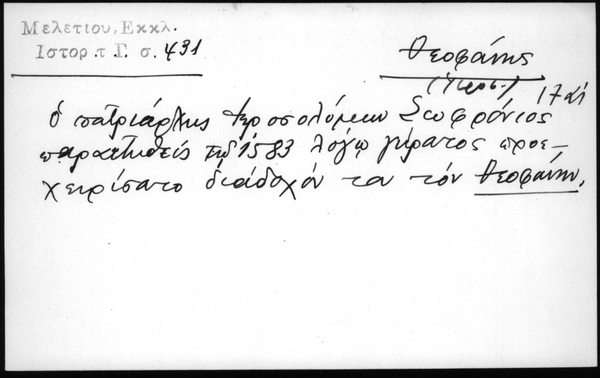 Μελετίου, Εκκλ.
Ιστορ. τ. Γ. σ. 431
Θεοφάνης
(Ιερος.)
17 αἰ
ὁ πατριάρχης Ἱεροσολύμων Σωφρόνιος
παραιτηθείς τῷ 1583 λόγῳ γήρατος προε-
χειρίσατο διάδοχόν του τόν Θεοφάνην.